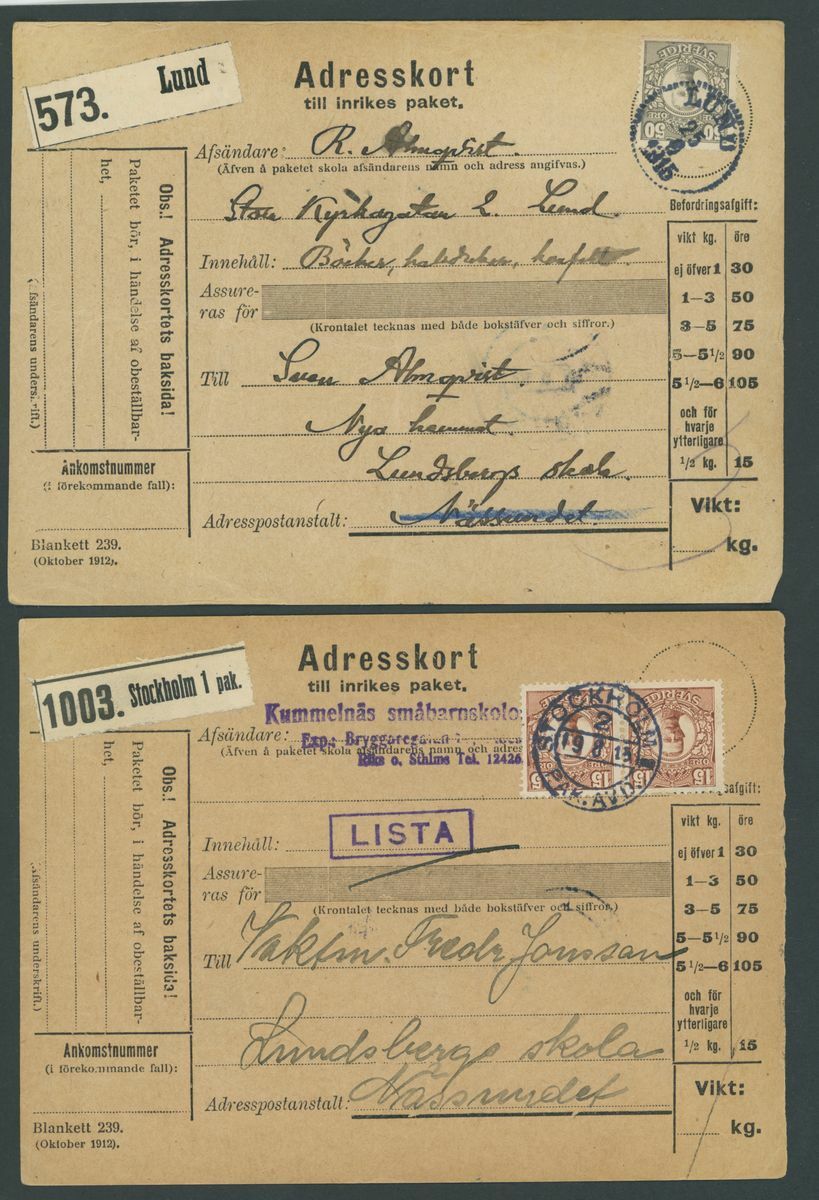 573. Lund
Adresskort
till inrikes paket.
SVERIGE
50 ÖRE 50
LUND
25
9
1915
Afsändare: R. Almqvist.
(Äfven å paketet skola afsändarens namn och adress angifvas.)
Stora Kyrkogatan 2. Lund.
Innehåll: Böcker,
Assure-
ras för
(Krontalet tecknas med både bokstäfver och siffror.)
Till Sven Almqvist.
Nya hemmet.
Lundsbergs skola.
Adresspostanstalt: Nässundet.
Befordringsafgift:
vikt kg. öre
ej öfver 1 30
1—3 50
3—5 75
5—5 1/2 90
5 1/2—6 105
och för
hvarje
ytterligare
1/2 kg. 15
Vikt:
kg.
Obs.! Adresskortets baksida!
Paketet bör, i händelse af obeställbar-
het,
(Afsändarens underskrift.)
Ankomstnummer
(i förekommande fall):
Blankett 239.
(Oktober 1912).
1003. Stockholm 1 pak.
Adresskort
till inrikes paket.
Kummelnäs småbarnskolo
Afsändare: Exp.: Bryggaregatan
(Äfven å paketet skola afsändarens namn och adres
Riks o. Sthlms Tel. 12426
SVERIGE
15 ÖRE 15
STOCKHOLM 1
2
19 8 13
PAK. AVD.
Innehåll: LISTA
Assure-
ras för
(Krontalet tecknas med både bokstäfver och siffror.)
Till Vaktm. Fredr Jonssan
Lundsbergs skola
Adresspostanstalt: Nässundet
safgift:
vikt kg. öre
ej öfver 1 30
1—3 50
3—5 75
5—5 1/2 90
5 1/2—6 105
och för
hvarje
ytterligare
1/2 kg. 15
Vikt:
kg.
Obs.! Adresskortets baksida!
Paketet bör, i händelse af obeställbar-
het,
(Afsändarens underskrift.)
Ankomstnummer
(i förekommande fall):
Blankett 239.
(Oktober 1912).